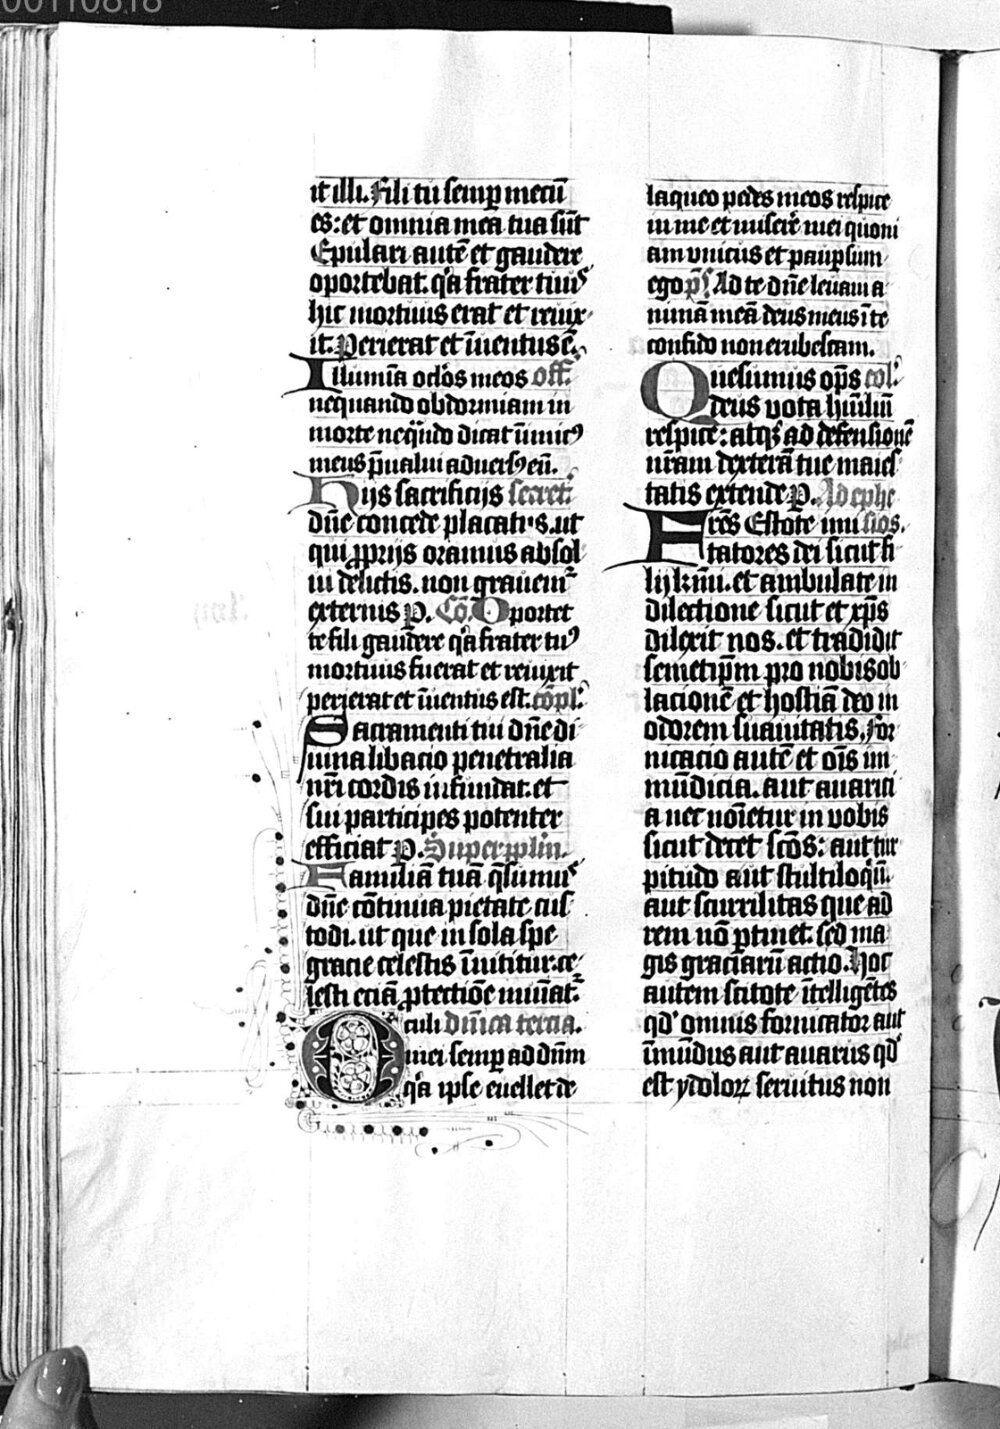 00110818
it illi. Fili tu semꝑ mecū
es: et omnia mea tua sūt
Epulari autē et gaudere
oportebat. qͣ frater tuus
hic mortuus erat et reuix
it. Perierat et īuentus ē.
Illumīa oclōs meos off.
nequando obdormiam in
morte neqͣndo dicat īimicꝰ
meus p̄ualui aduersꝰ eū.
Hijs sacrificijs secret.
dn̄e concede placatus. ut
qui ꝓprijs oramus absol
ui delictis. non grauemᷣ
externis P. Cō. Oportet
te fili gaudere qͣ frater tuꝰ
mortuus fuerat et reuixit
perierat et īuentus est. cōpl.
Sacramenti tui dn̄e di
uina libacio penetralia
nr̄i cordis infundat. et
sui participes potenter
efficiat P. Super pplm̄.
Familiā tuā qs̄umus
dn̄e cōtinua pietate cus
todi. ut que in sola spe
gracie celestis īnititur. ce
lesti eciā ꝓtectiōe muniatᷣ.
Oculi dn̄ica tercia.
mei semꝑ ad dn̄m
qͣ ipse euellet de
laqueo pedes meos respice
in me et miserē mei quoni
am vnicus et pauꝑ sum
ego pš. Ad te dn̄e leuaui a
nimā meā deus meus ī te
confido non erubescam.
Quesumus op̄s col.
deus vota hūiliū
respice: atqꝫ ad defensionē
nr̄am dexterā tue maies
tatis extende P. Ad ephe
Frēs Estote imi sios.
tatores dei sicut fi
lij kr̄mi. et ambulate in
dilectione sicut et xp̄s
dilexit nos. et tradidit
semetip̄m pro nobis ob
lacionē et hostiā deo in
odorem suauitatis. For
nicacio autē et oīs im
mūdicia. aut auarici
a nec noīetur in vobis
sicut decet scōs: aut tur
pitudo aut stultiloqͥū.
aut scurrilitas que ad
rem nō ꝑtinet. sed ma
gis graciarū actio. Hoc
autem scitote ītelligētes
qd̓ omnis fornicator aut
īmūdus aut auarus qd̓
est ydoloꝝ seruitus non